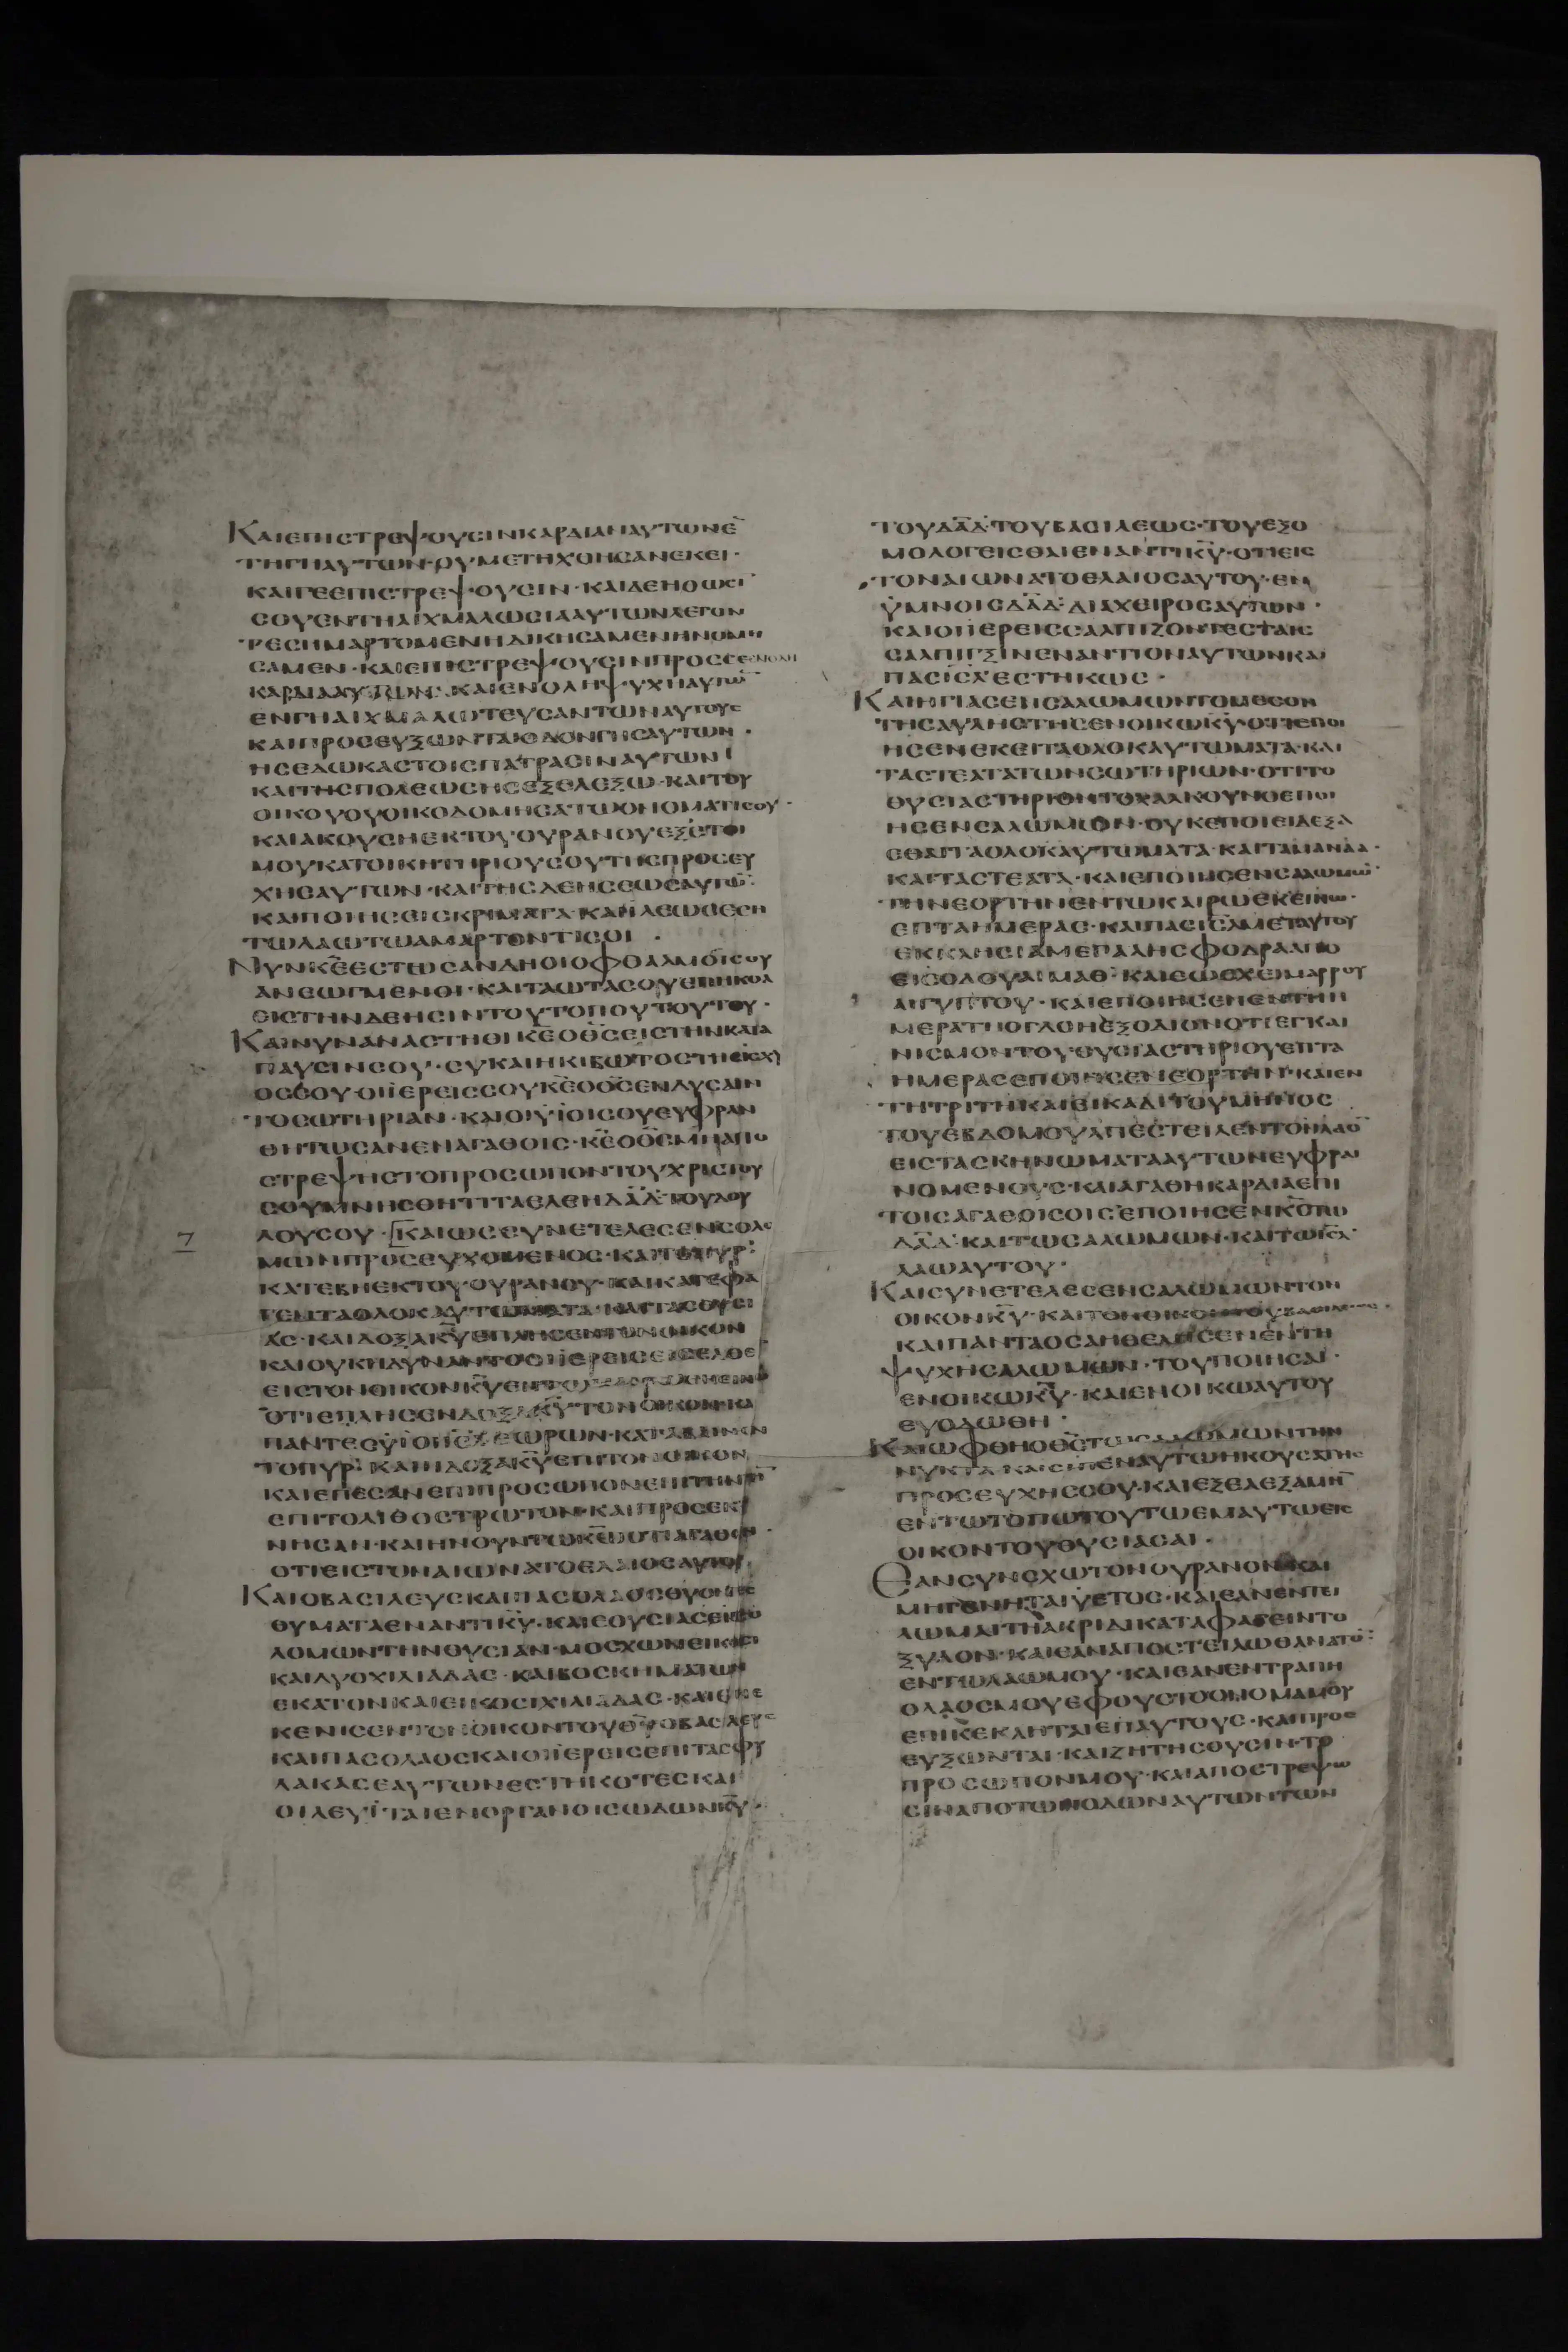 ΚΑΙΕΠΙСΤΡΕΨΟΥСΙΝΚΑΡΔΙΑΝΑΥΤΩΝΕ̅
ΤΗΓΗΑΥΤΩΝ·ΟΥΜΕΤΗΧΘΗСΑΝΕΚΕΙ·
ΚΑΙΓΕΕΠΙСΤΡΕΨΟΥСΙΝ·ΚΑΙΔΕΗΘΩСΙ
СΟΥΕΝΤΗΑΙΧΜΑΛΩСΙΑΑΥΤΩΝΛΕΓΟΝ
ΤΕСΗΜΑΡΤΟΜΕΝΗΔΙΚΗСΑΜΕΝΗΝΟΜΗ
СΑΜΕΝ·ΚΑΙΕΠΙСΤΡΕΨΟΥСΙΝΠΡΟССΕΕΝΟΛΗ
ΚΑΡΔΙΑΑΥΤΩΝ·ΚΑΙΕΝΟΛΗΨΥΧΗΑΥΤΩ̅
ΕΝΓΗΑΙΧΜΑΛΩΤΕΥСΑΝΤΩΝΑΥΤΟΥС
ΚΑΙΠΡΟСΕΥΞΩΝΤΑΙΟΔΟΝΓΗСΑΥΤΩΝ·
ΗСΕΔΩΚΑСΤΟΙСΠΑΤΡΑСΙΝΑΥΤΩΝ
ΚΑΙΤΗСΠΟΛΕΩСΗСΕΞΕΛΕΞΩ·ΚΑΙΤΟΥ
ΟΙΚΟΥΟΥΟΙΚΟΔΟΜΗСΑΤΩΟΝΟΜΑΤΙСΟΥ·
ΚΑΙΑΚΟΥСΗΕΚΤΟΥΟΥΡΑΝΟΥΕΞΕΤΟΙ
ΜΟΥΚΑΤΟΙΚΗΤΗΡΙΟΥСΟΥΤΗСΠΡΟСΕΥ
ΧΗСΑΥΤΩΝ·ΚΑΙΤΗСΔΕΗСΕΩСΑΥΤΩ̅·
ΚΑΙΠΟΙΗСΕΙСΚΡΙΜΑΤΑ·ΚΑΙΪΛΕΩСΕСΗ
ΤΩΛΑΩΤΩΑΜΑΡΤΟΝΤΙСΟΙ·
ΝΥΝΚ̅Ε̅ΕСΤΩСΑΝΔΗΟΙΟΦΘΑΛΜΟΙСΟΥ
ΑΝΕΩΓΜΕΝΟΙ·ΚΑΙΤΑΩΤΑСΟΥΕΠΗΚΟΑ
ΕΙСΤΗΝΔΕΗСΙΝΤΟΥΤΟΠΟΥΤΟΥΤΟΥ·
ΚΑΙΝΥΝΑΝΑСΤΗΘΙΚ̅Ε̅ΟΘ̅С̅ΕΙСΤΗΝΚΑΤΑ
ΠΑΥСΙΝСΟΥ·СΥΚΑΙΗΚΙΒΩΤΟСΤΗСΙСΧΥ
ΟССΟΥ·ΟΙΪΕΡΕΙССΟΥΚ̅Ε̅ΟΘ̅С̅ΕΝΔΥСΑΙΝ
ΤΟСΩΤΗΡΙΑΝ·ΚΑΙΟΙΫΪΟΙСΟΥΕΥΦΡΑΝ
ΘΗΤΩСΑΝΕΝΑΓΑΘΟΙС·Κ̅Ε̅ΟΘ̅С̅ΜΗΑΠΟ
СΤΡΕΨΗСΤΟΠΡΟСΩΠΟΝΤΟΥΧΡΙСΤΟΥ
СΟΥΜΝΗСΘΗΤΙΤΑΕΛΕΗΔ̅Α̅Δ̅·ΤΟΥΔΟΥ
ΛΟΥСΟΥ·ΚΑΙΩССΥΝΕΤΕΛΕСΕΝСΟΛΟ
ΜΩΝΠΡΟСΕΥΧΟΜΕΝΟС·ΚΑΙΤΟΠΥΡ:
ΚΑΤΕΒΗΕΚΤΟΥΟΥΡΑΝΟΥ·ΚΑΙΚΑΤΕΦΑ
ΓΕΝΤΑΟΛΟΚΑΥΤΩΜΑΤΑ·ΚΑΙΤΑСΘΥСΙ
ΑС·ΚΑΙΔΟΞΑΚ̅Υ̅ΕΠΛΗСΕΝΤΟΝΟΙΚΟΝ
ΚΑΙΟΥΚΗΔΥΝΑΝΤΟΟΙΪΕΡΕΙСΕΙСΕΛΘΕΙ̅
ΕΙСΤΟΝΟΙΚΟΝΚ̅Υ̅ΕΝΤΩ
ΟΤΙΕΠΛΗСΕΝΔΟΞΑΚ̅Υ̅ΤΟΝΟΙΚΟΝ·ΚΑΙ
ΠΑΝΤΕСΟΥΪΟΙΪ̅Η̅Λ̅ΕΩΡΩΝ·ΚΑΤΑΒΑΙΝΟΝ
ΤΟΠΥΡ·ΚΑΙΗΔΟΞΑΚ̅Υ̅ΕΠΙΤΟΝΟΙΚΟΝ
ΚΑΙΕΠΕСΑΝΕΠΙΠΡΟСΩΠΟΝΕΠΙΤΗΝΓΗ̅
ΕΠΙΤΟΛΙΘΟСΤΡΩΤΟΝ·ΚΑΙΠΡΟСΕΚΥ
ΝΗСΑΝ·ΚΑΙΗΝΟΥΝΤΩΚ̅Ω̅ΟΤΙΑΓΑΘΟΝ·
ΟΤΙΕΙСΤΟΝΑΙΩΝΑΤΟΕΛΑΙΟСΑΥΤΟΥ
ΚΑΙΟΒΑСΙΛΕΥСΚΑΙΠΑСΟΛΑΟСΘΥΟΝΤΕС
ΘΥΜΑΤΑΕΝΑΝΤΙΚ̅Υ̅·ΚΑΙΕΘΥСΙΑСΕΝСΟ
ΛΟΜΩΝΤΗΝΘΥСΙΑΝ·ΜΟСΧΩΝΕΙΚΟСΙ
ΚΑΙΔΥΟΧΙΛΙΑΔΑС·ΚΑΙΒΟСΚΗΜΑΤΩΝ
ΕΚΑΤΟΝΚΑΙΕΙΚΟСΙΧΙΛΙΑΔΑС·ΚΑΙΕΝΕ
ΚΕΝΙСΕΝΤΟΝΟΙΚΟΝΤΟΥΘ̅Υ̅ΟΒΑСΙΛΕΥС
ΚΑΙΠΑСΟΛΑΟСΚΑΙΟΙΪΕΡΕΙСΕΠΙΤΑСΦΥ
ΛΑΚΑСΕΑΥΤΩΝΕСΤΗΚΟΤΕСΚΑΙ
ΟΙΛΕΥΪΤΑΙΕΝΟΡΓΑΝΟΙСΩΔΩΝΚ̅Υ̅·
ΤΟΥΔ̅Α̅Δ̅·ΤΟΥΒΑСΙΛΕΩС·ΤΟΥΕΞΟ
ΜΟΛΟΓΕΙСΘΑΙΕΝΑΝΤΙΚ̅Υ̅·ΟΤΙΕΙС
ΤΟΝΑΙΩΝΑΤΟΕΛΑΙΟСΑΥΤΟΥ·ΕΝ
ΫΜΝΟΙСΔ̅Α̅Δ̅·ΔΙΑΧΕΙΡΟСΑΥΤΩΝ·
ΚΑΙΟΙΪΕΡΕΙССΑΛΠΙΖΟΝΤΕСΤΑΙС
СΑΛΠΙΓΞΙΝΕΝΑΝΤΙΟΝΑΥΤΩΝΚΑΙ
ΠΑСΙ̅С̅Λ̅ΕСΤΗΚΩС·
ΚΑΙΗΓΙΑСΕΝСΑΛΩΜΩΝΤΟΜΕСΟΝ
ΤΗСΑΥΛΗСΤΗСΕΝΟΙΚΩΚ̅Υ̅·ΟΤΙΕΠΟΙ
ΗСΕΝΕΚΕΙΤΑΟΛΟΚΑΥΤΩΜΑΤΑ·ΚΑΙ
ΤΑСΤΕΑΤΑΤΩΝСΩΤΗΡΙΩΝ·ΟΤΙΤΟ
ΘΥСΙΑСΤΗΡΙΟΝΤΟΧΑΛΚΟΥΝΟΕΠΟΙ
ΗСΕΝСΑΛΩΜΩΝ·ΟΥΚΕΠΟΙΕΙΔΕΞΑ
СΘΑΙΤΑΟΛΟΚΑΥΤΩΜΑΤΑ·ΚΑΙΤΑΜΑΝΑΑ·
ΚΑΙΤΑСΤΕΑΤΑ·ΚΑΙΕΠΟΙΗСΕΝСΑΛΩΜΩ̅·
ΤΗΝΕΟΡΤΗΝΕΝΤΩΚΑΙΡΩΕΚΕΙΝΩ·
ΕΠΤΑΗΜΕΡΑС·ΚΑΙΠΑСΙ̅С̅Λ̅ΜΕΤΑΥΤΟΥ
ΕΚΚΛΗСΙΑΜΕΓΑΛΗСΦΟΔΡΑΑΠΟ
ΕΙСΟΔΟΥΑΙΜΑΘ·ΚΑΙΕΩСΧΕΙΜΑΡΡΟΥ
ΑΙΓΥΠΤΟΥ·ΚΑΙΕΠΟΙΗСΕΝΕΝΤΗΗ
ΜΕΡΑΤΗΟΓΔΟΗΕΞΟΔΙΟΝΟΤΙΕΓΚΑΙ
ΝΙСΜΟΝΤΟΥΘΥСΙΑСΤΗΡΙΟΥΕΠΤΑ
ΗΜΕΡΑСΕΠΟΙΗСΕΝΕΟΡΤΗΝ·ΚΑΙΕΝ
ΤΗΤΡΙΤΗΚΑΙΕΙΚΑΔΙΤΟΥΜΗΝΟС
ΤΟΥΕΒΔΟΜΟΥΑΠΕСΤΕΙΛΕΝΤΟΝΛΑΟ̅
ΕΙСΤΑСΚΗΝΩΜΑΤΑΑΥΤΩΝΕΥΦΡΑΙ
ΝΟΜΕΝΟΥС·ΚΑΙΑΓΑΘΗΚΑΡΔΙΑΕΠΙ
ΤΟΙСΑΓΑΘΟΙСΟΙСΕΠΟΙΗСΕΝΚ̅С̅ΤΩ
Δ̅Α̅Δ̅·ΚΑΙΤΩСΑΛΩΜΩΝ·ΚΑΙΤΩΙ̅С̅Λ̅
ΛΑΩΑΥΤΟΥ·
ΚΑΙСΥΝΕΤΕΛΕСΕΝСΑΛΩΜΩΝΤΟΝ
ΟΙΚΟΝΚ̅Υ̅·ΚΑΙΤΟΝΟΙΚΟΝΤΟΥΒΑСΙΛΕΩС·
ΚΑΙΠΑΝΤΑΟСΑΗΘΕΛΗСΕΝΕΝΤΗ
ΨΥΧΗСΑΛΩΜΩΝ·ΤΟΥΠΟΙΗСΑΙ·
ΕΝΟΙΚΩΚ̅Υ̅·ΚΑΙΕΝΟΙΚΩΑΥΤΟΥ
ΕΥΟΔΩΘΗ·
ΚΑΙΩΦΘΗΟΘ̅С̅ΤΩСΑΛΟΜΩΝΤΗΝ
ΝΥΚΤΑ·ΚΑΙΕΙΠΕΝΑΥΤΩΗΚΟΥСΑΤΗС
ΠΡΟСΕΥΧΗССΟΥ·ΚΑΙΕΞΕΛΕΞΑΜΗ̅
ΕΝΤΩΤΟΠΩΤΟΥΤΩΕΜΑΥΤΩΕΙС
ΟΙΚΟΝΤΟΥΘΥСΙΑСΑΙ·
ΕΑΝСΥΝСΧΩΤΟΝΟΥΡΑΝΟΝΚΑΙ
ΜΗΓΕΝΗΤΑΙΫΕΤΟС·ΚΑΙΕΑΝΕΝΤΕΙ
ΛΩΜΑΙΤΗΑΚΡΙΔΙΚΑΤΑΦΑΓΕΙΝΤΟ
ΞΥΛΟΝ·ΚΑΙΕΑΝΑΠΟСΤΕΙΛΩΘΑΝΑΤΟ̅:
ΕΝΤΩΛΑΩΜΟΥ·ΚΑΙΕΑΝΕΝΤΡΑΠΗ
ΟΛΑΟСΜΟΥΕΦΟΥСΤΟΟΝΟΜΑΜΟΥ
ΕΠΙΚΕΚΛΗΤΑΙΕΠΑΥΤΟΥС·ΚΑΙΠΡΟС
ΕΥΞΩΝΤΑΙ·ΚΑΙΖΗΤΗСΟΥСΙΝ·ΤΟ
ΠΡΟСΩΠΟΝΜΟΥ·ΚΑΙΑΠΟСΤΡΕΨΩ
СΙΝΑΠΟΤΩΝΟΔΩΝΑΥΤΩΝΤΩΝ